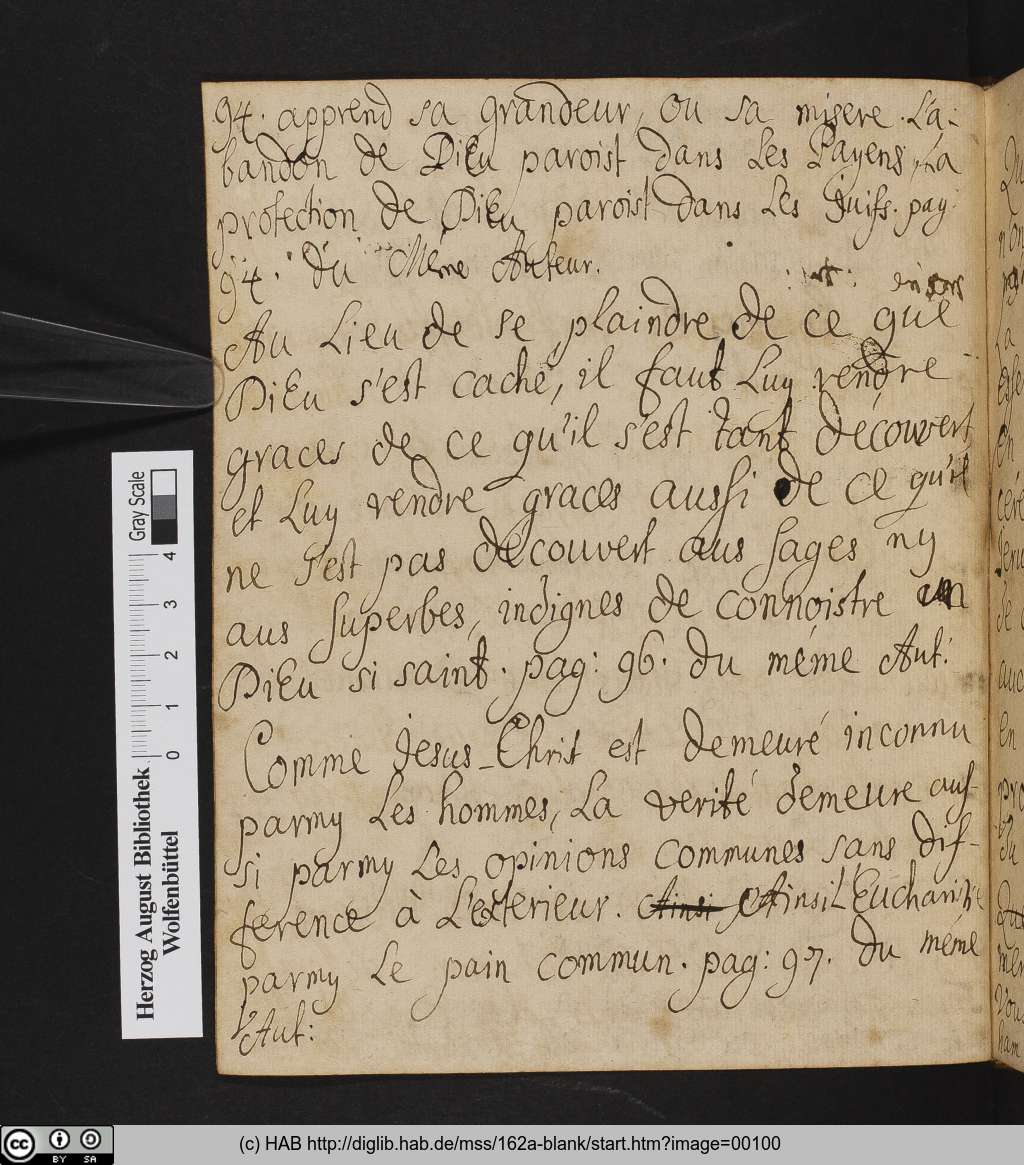 94. apprend sa grandeur, ou sa misere. L'a-
bandon de Dieu paroist dans Les Payens, La
protection de Dieu paroist dans Les Juifs. pag:
94. du Méme Auteur.
Au Lieu de se plaindre de ce que
Dieu s'est caché, il faut Luy rendre
graces de ce qu'il s'est tant découvert
et Luy rendre graces aussi de ce qu'il
ne s'est pas decouvert aus sages ny
aus superbes, indignes de connoistre un
Dieu si saint. pag: 96. du méme Aut:
Comme Jesus-Christ est demeuré inconnu
parmy Les hommes, La verité demeure aus-
si parmy Les opinions communes sans dif-
ference à L'exterieur. Ainsi Ainsi L'Eucharistie
parmy Le pain commun. pag: 97. du méme
Aut:
Herzog August Bibliothek
Wolfenbüttel
Gray Scale
0 1 2 3 4
cc BY SA
(c) HAB http://diglib.hab.de/mss/162a-blank/start.htm?image=00100